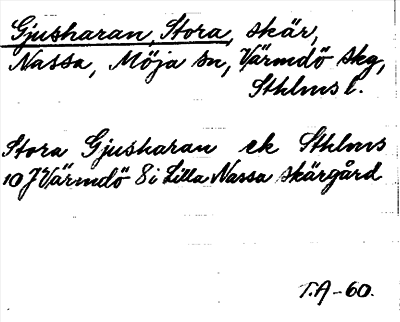 Gjusharan, Stora, skär,
Nassa, Möja sn, Värmdö skg,
Sthlms l.
Stora Gjusharan ek Sthlms
10 J Värmdö 8 i Lilla Nassa skärgård
T.A-60.